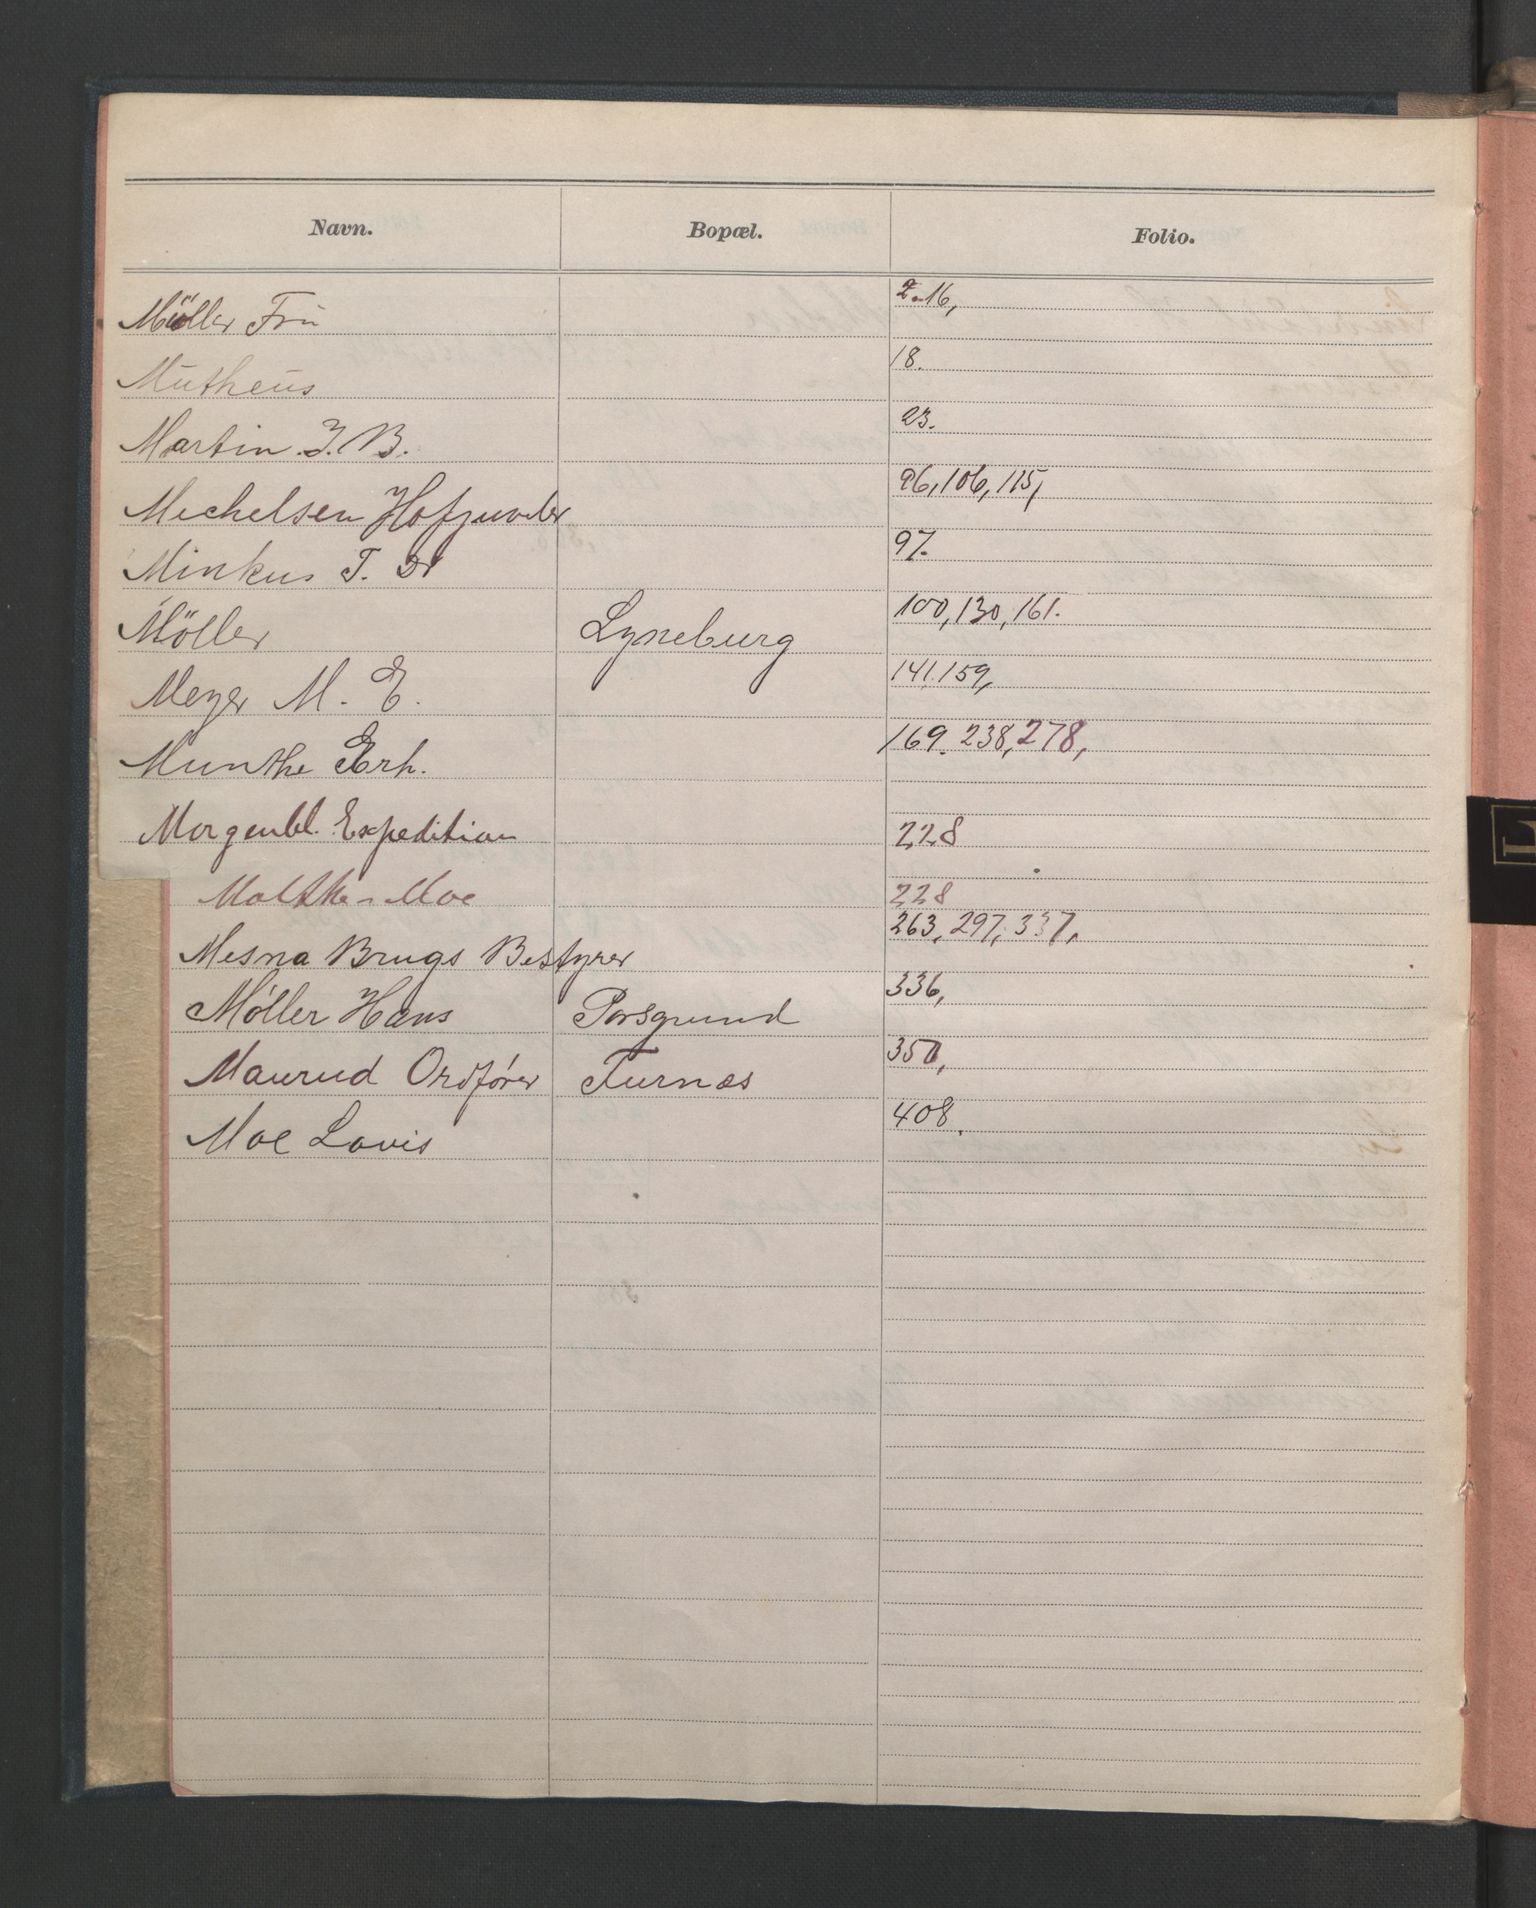 Navn. Bopæl. Folio.
Müller Frü 2.16,
Mütheüs 18.
Martin. J. B. 23.
Michelsen Hofjuveler 96, 106, 115,
Minkus T. Dr 97.
Möller Lyneburg 100, 130, 161.
Meyer M. E. 141. 159,
Munthe Erh. 169. 238, 278,
Morgenbl. Expedition 228
Moltke-Moe 228
Mesna Brugs Bestyrer 263, 297, 337,
Møller Hans Porsgrund 336,
Maurud Ordfører Furnæs 350,
Moe Lovis 408.
L